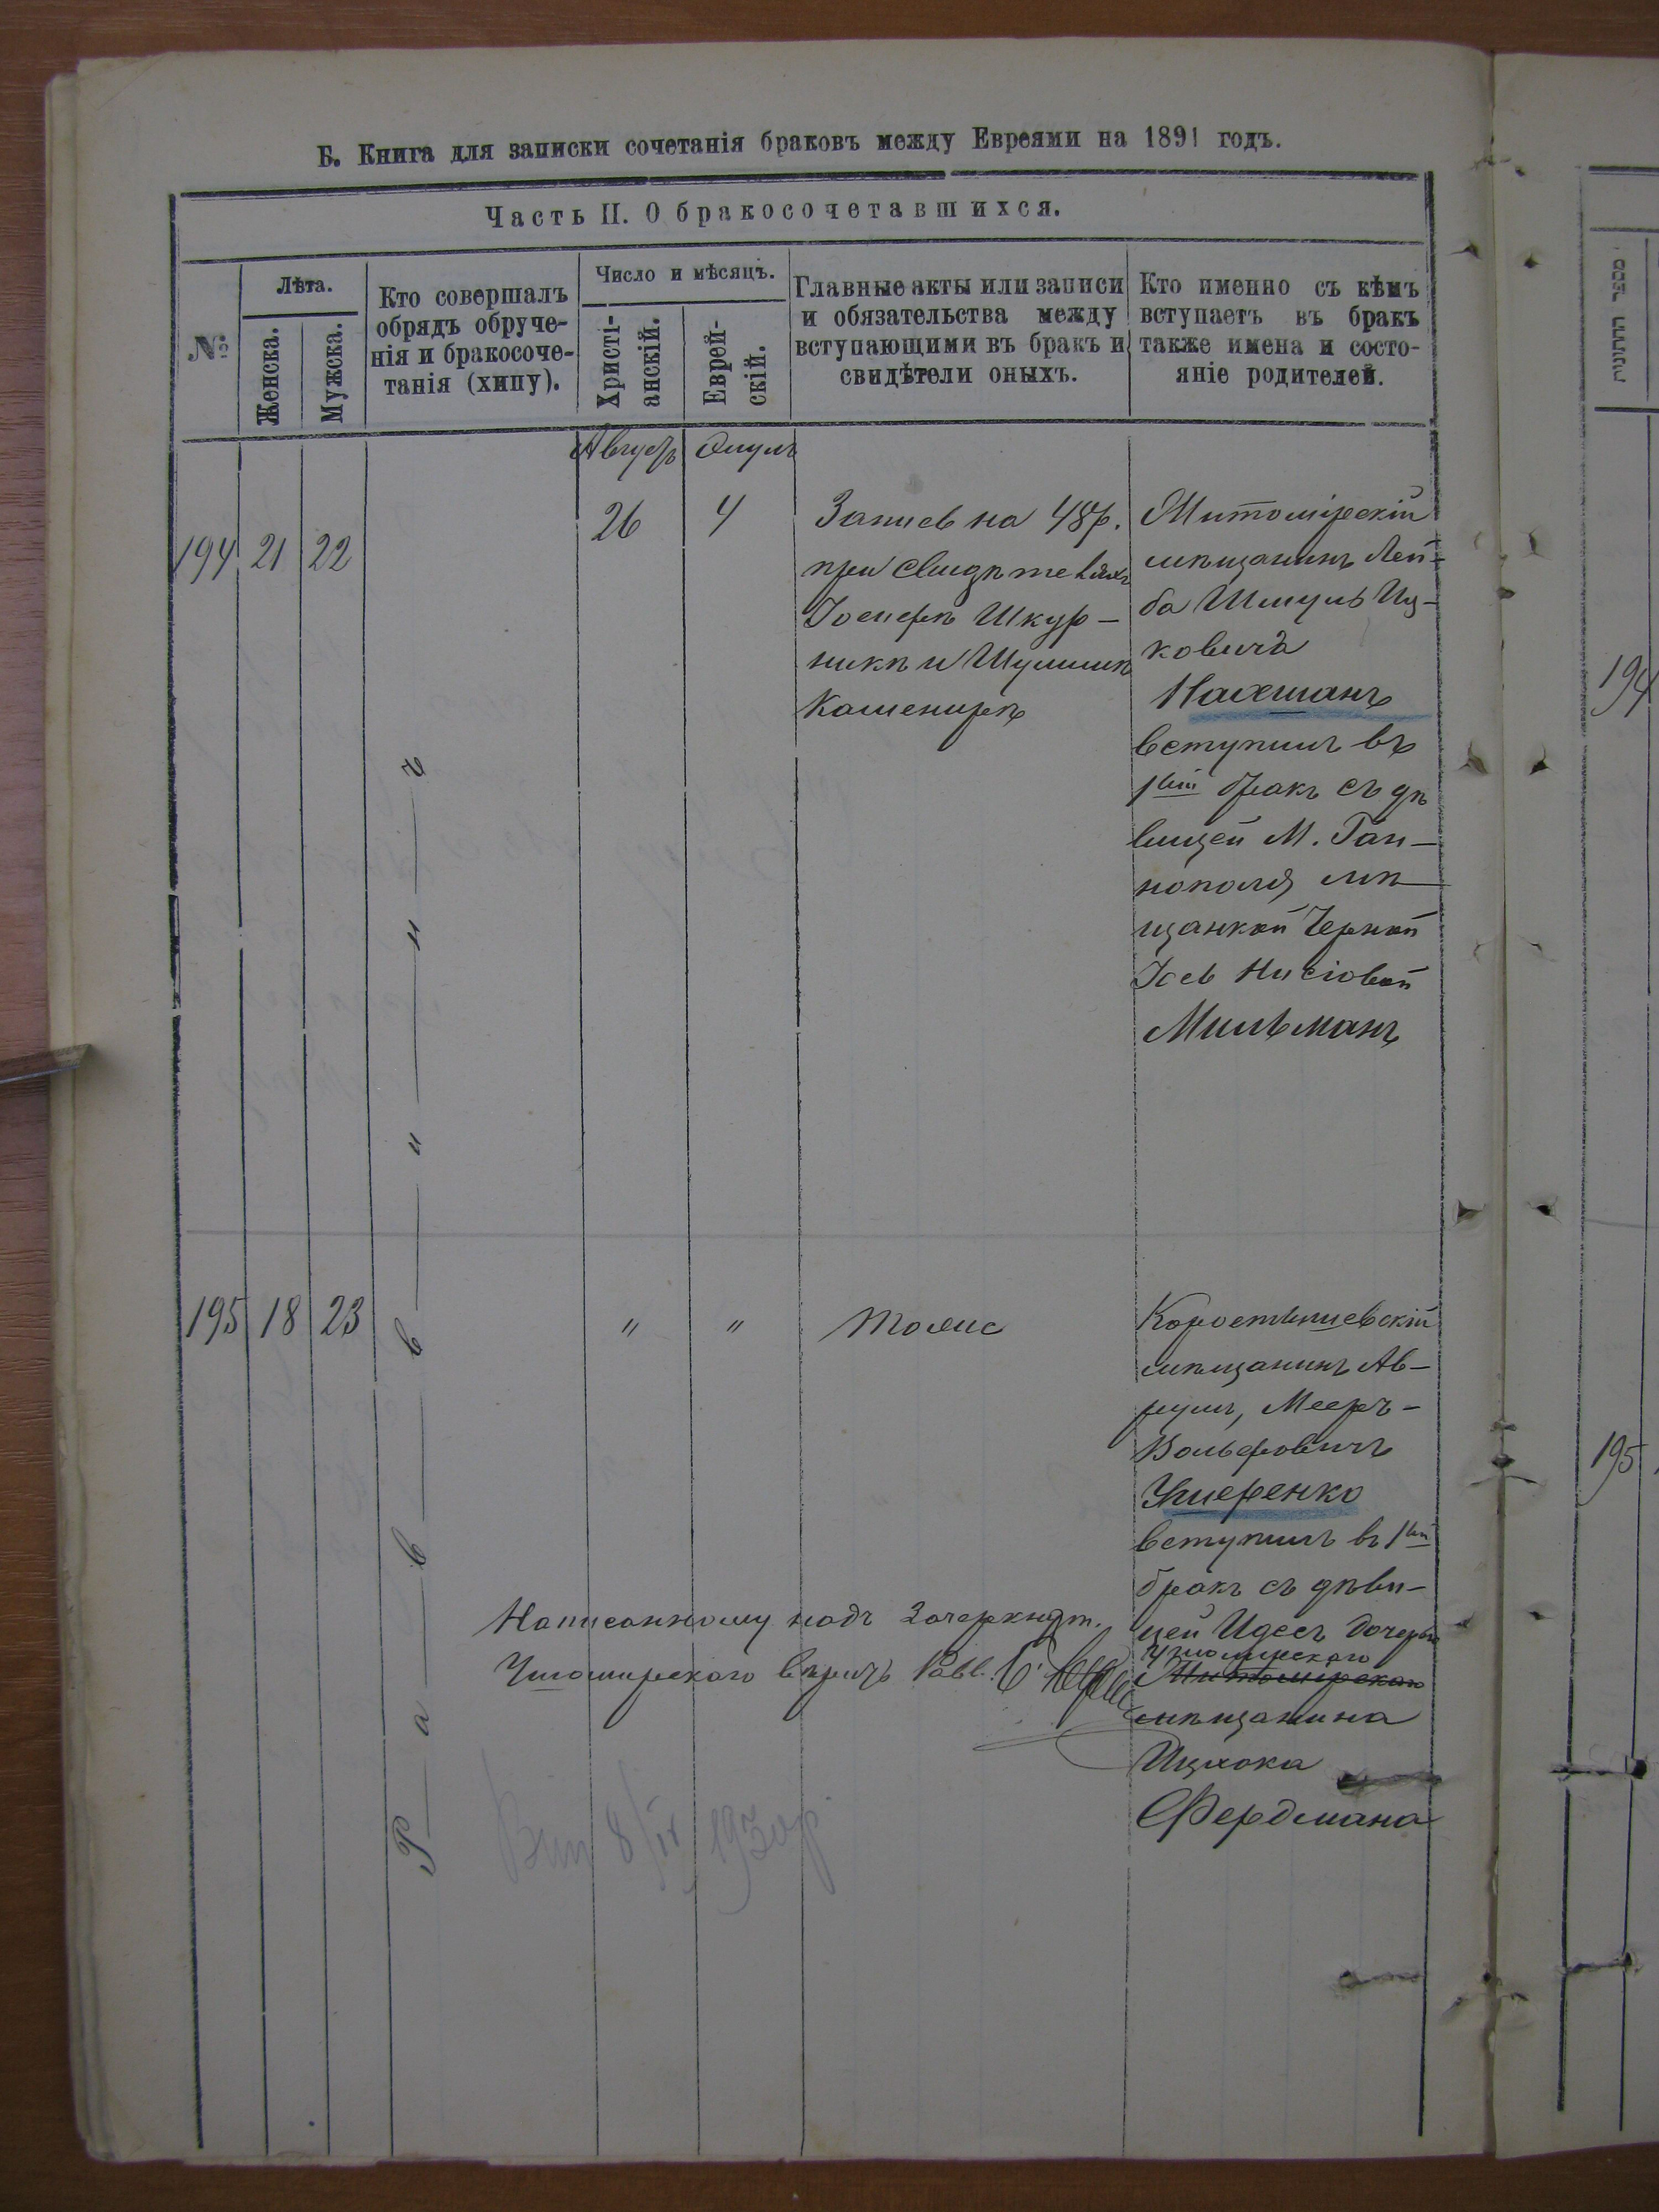 Б. Книга для записки сочетанія браковъ между Евреями на 1891 годъ.
Часть II. О бракосочетавшихся.
№
Лѣта.
Женска.
Мужска.
Кто совершалъ
обрядъ обруче-
нія и бракосоче-
танія (хипу).
Число и мѣсяцъ.
Христі-
анскій.
Еврей-
скій.
Главные акты или записи
и обязательства между
вступающими въ бракъ и
свидѣтели оныхъ.
Кто именно съ кѣмъ
вступаетъ въ бракъ
также имена и состо-
яніе родителей.
Августъ
Элулъ
194
21
22
26
4
Запись на 48 р.
при свидѣтеляхъ
Іосифѣ Шкур-
никѣ и Шулимѣ
Кашенирѣ
Житомірскій
мѣщанинъ Лей-
ба Шмуль Иц-
ковичъ
Нахманъ
вступилъ въ
1ый бракъ съ дѣ
вицей М.
нополя мѣ
щанкой Черной
Хсь Нисіовой
Мильманъ
195
18
23
"
"
Тоже
Коростышевскій
мѣщанинъ Ав-
румъ, Мееръ-
Вольфовичъ
Ушеренко
вступилъ въ 1ый
бракъ съ дѣви-
цей Идесъ дочерью
Ушомирского
Житомірскаго
мѣщанина
Ицхока
Фердмана
Написанному надъ зачеркнут.
Ушомирского вѣрить Равв.
Р а в в и н ъ
8/IV 1930 р.
194
195